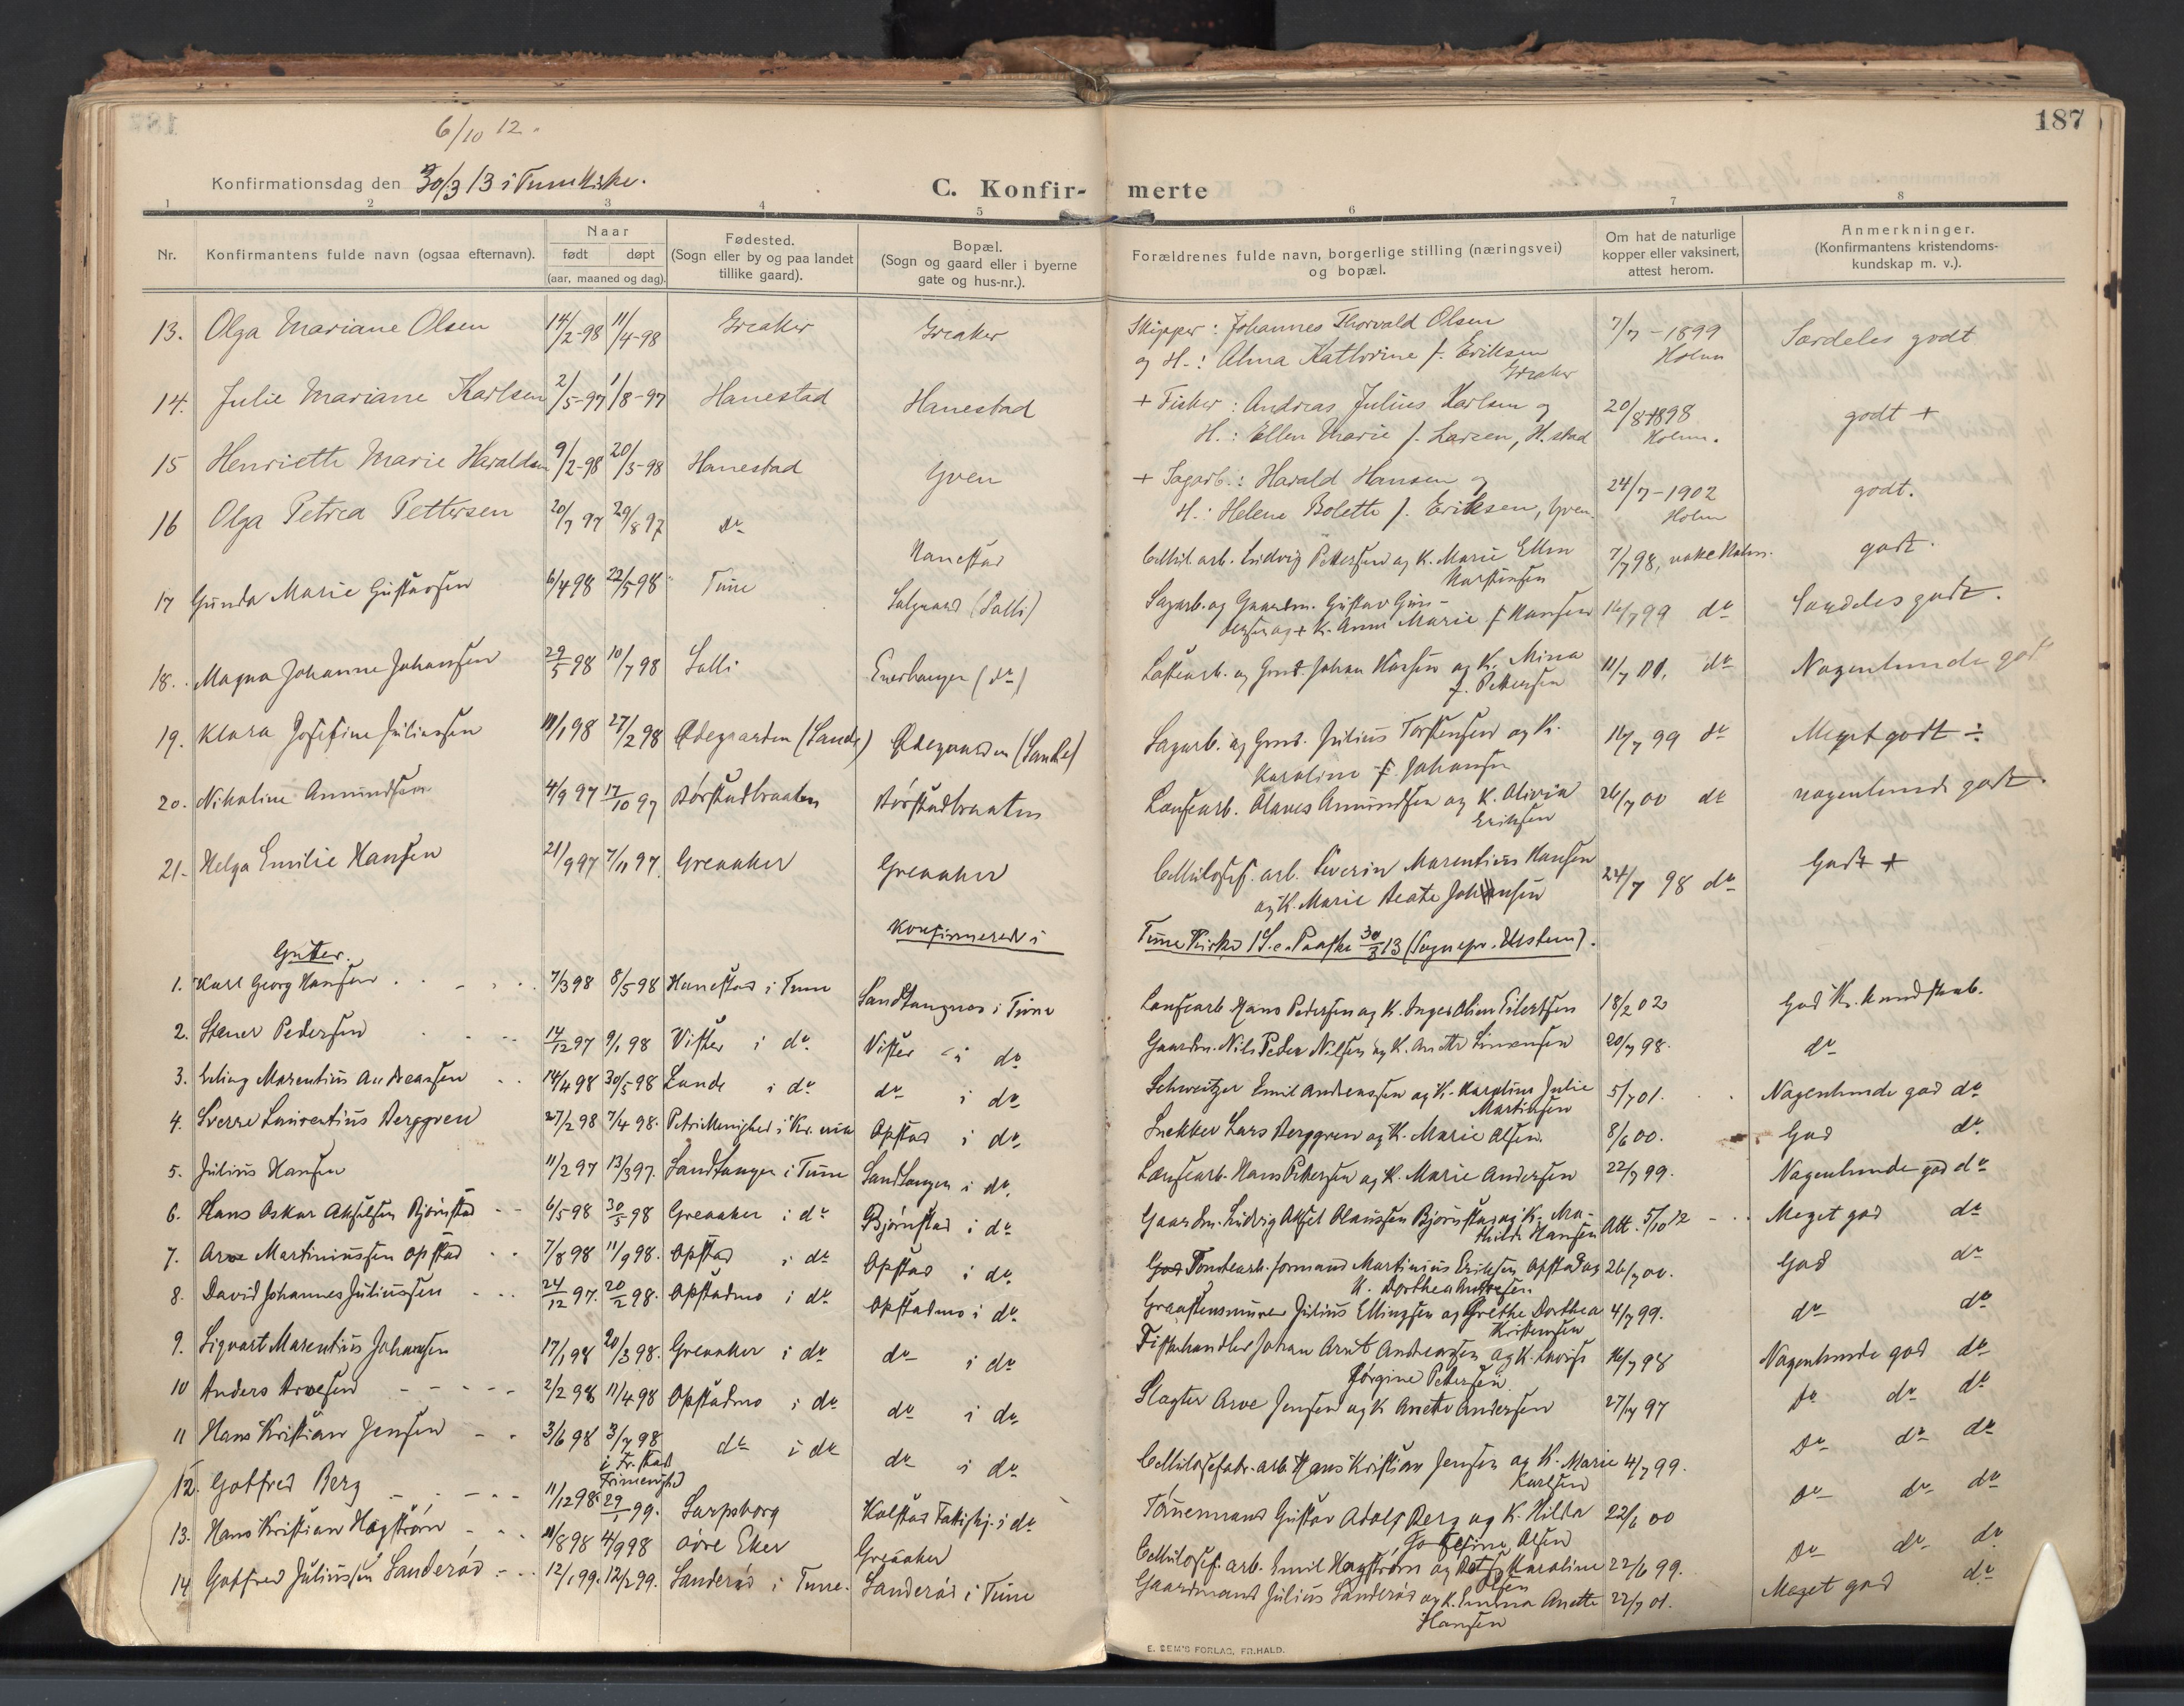 187
6/10 12.
Konfirmationsdag den 30/3 13 i Tune Kirke.
C. Konfir- merte
1 2 3 4 5 6 7 8
Nr. Konfirmantens fulde navn (ogsaa efternavn). Naar født døpt (aar, maaned og dag). Fødested. (Sogn eller by og paa landet tillike gaard). Bopæl. (Sogn og gaard eller i byerne gate og hus-nr.). Forældrenes fulde navn, borgerlige stilling (næringsvei) og bopæl. Om hat de naturlige kopper eller vaksinert, attest herom. Anmerkninger. (Konfirmantens kristendoms-kundskap m. v.).
13. Olga Mariane Olsen 14/2-98 11/4-98 Greaker Greaker Skipper: Johannes Thorvald Olsen 7/7-1899 Særdeles godt
og H.: Alma Kathrine f. Eriksen Greaker Holm
14. Julie Mariane Karlsen 2/5-97 1/8-97 Hanestad Hanestad + Fisker: Andreas Julius Karlsen og 20/8 1898 godt +
H.: Ellen Marie f. Larsen, H.stad Holm.
15 Henriette Marie Haraldsen 9/2-98 20/3-98 Hanestad Yven + Sagarb.: Harald Hansen og 24/7-1902 godt.
H.: Helene Bolette f. Eriksen, Yven. Holm
16 Olga Petrea Pettersen 20/7 97 29/8 97 Do Hanestad Cellul. arb. Ludvig Pettersen og K. Marie Ellen 7/7 98, Holm. godt.
17 Gunda Marie Gustavsen 6/4 98 22/5 98 Tune (Valli) Sagarb. og Gaardm. Gustav Gun-
dersen og + K. Anne Marie f Hansen 16/7 99 do Særdeles godt.
18. Magna Johanne Johansen 29/5 98 10/7 98 Valli Enerhaugen (do) og Johan Hansen og K. Mina 11/7 do Nogenlunde god
f. Pettersen
19. Klara Josefine Juliussen 98 27/2 98 Ødegaarden (Lande) Ødegaarden (Lande) Sagarb. og Julius Torstensen og K. 16/7 99 do Meget godt ÷
Karoline f. Johansen
20. Nikoline Amundsen 4/9 97 17/10 97 Børstadbraaten Børstadbraaten Løsearb. Olaves Amundsen og K. Olivia 26/7 00 do nogenlunde godt.
Eriksen
21. Helga Emilie Hansen 21/9 97 7/11 97. Greaaker Greaaker Cellulosef. arb. Severin Marentius Hansen 24/7 98 do Godt +
og K. Marie Beate Johansen
Konfirmered i Tune Kirke 1 S. e. Paaske 30/3 13 (Sognepr. Ulstein).
Gutter.
1. Karl Georg Hansen 7/3 98 8/5 98 Hanestad i Tune Sandtangen i Tune Løsearb. Hans Pedersen og K. Inger Oline Eilertsen 18/2 02 God Kr. kundskab.
2. Stener Pedersen 14/12 97 9/1 98 Vister i do. Vister i do Gaardm. Nils Peder Nilsen og K. Anette 20/7 98. do
3. Erling Marentius Andreassen 14/4 98 30/5 98 Lande i do. do i do Schweitzer Emil Andreassen og K. Karoline Julie 5/7 01. Nogenlunde god do
Martinsen
4. Sverre Laurentius Berggren 27/2 98 7/4 98. Petri Menighed i Opstad i do Snekker Lars Berggren og K. Marie Olsen. 8/6 00. God do.
5. Julius Hansen 11/2 97 13/3 97. Sandtangen i Tune Sandtangen i do. Løsearb. Hans Pettersen og K. Marie Andersen 22/7 99. Nogenlunde god do
6. Hans Oskar Akselsen Bjørnstad 6/5 98 30/5 98 Greaaker i do Bjørnstad i do Gaardm. Ludvig Aksel Olaussen Bjørnstad og K. Ma-
thilde Hansen Att. 5/10 12 Meget god do
7. Arve Martiniussen Opstad 7/8 98 11/9 98. Opstad i do Opstad i do. Tomtearb. formand Martinius Eriksen Opstad og 26/7 00. God do
K. Dorthea Andresen
8. David Johannes Juliussen 24/12 97. 20/2 98. Opstadmo i do Opstadmo i do. Graastensmurer Julius Ellingsen og Grethe Dorthea 4/7 99. do do
Kristensen
9. Sigvart Marentius Johansen 17/1 98 20/3 98. Greaaker i do do i do Fiskehandler Johan Arnt Andreassen og K. Lovise 16/7 98 Nogenlunde god do
Jørgine Pettersen.
10 Anders Arvesen 2/2 98 11/4 98 Opstadmo i do do i do Slagter Arve Jensen og K Anette Andersen 27/7 97 Do do do
11 Hans Kristian Jensen 3/6 98 3/7 98 do i do do i do Cellulosefabr. arb. Hans Kristian Jensen og K. Marie 4/7 99. Do do do
i Fr.stad Frimenighed Karlsen
12. Gotfred Berg 11/12 98 29/1 99. Sarpsborg Kalstad i do Gustav Adolf Berg og K. Hilda 22/6 00 Do do do
Josefine Olsen
13. Hans Kristian Hagstrøm 98 4/9 98 Øvre Eker Greaaker Cellulosef. arb. Emil Hagstrøm og Karoline 22/6 99. Do do do
Olsen
14 Gotfred Juliussen Sanderød 12/1 99. 12/2 99. Sanderød i Tune. Sanderød i Tune Gaardmand Julius Sanderød og K. Emma Anette 22/7 01. Meget god do
Hansen
E. SEM'S FORLAG, FR.HALD.